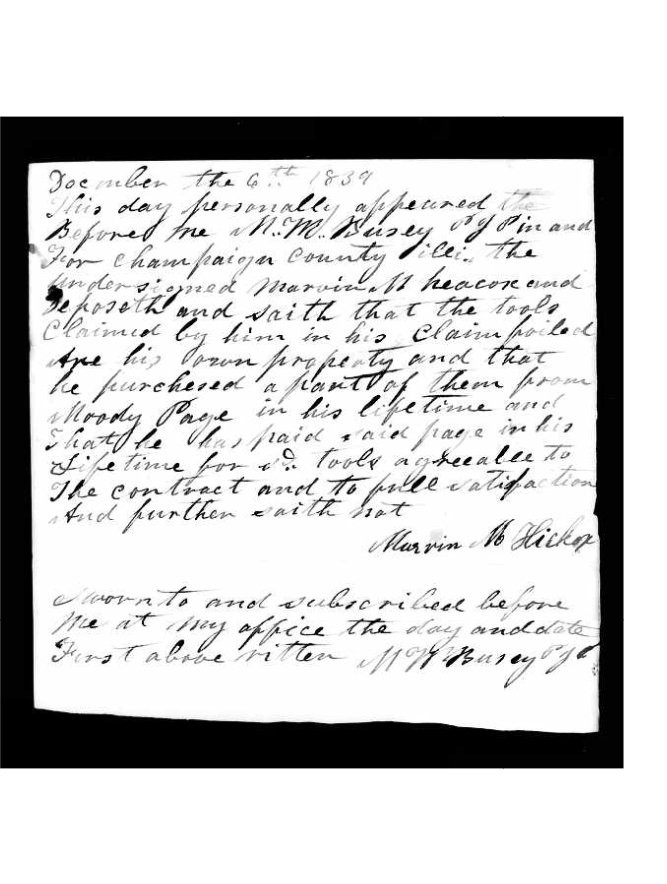 December the 6th 1839
This day personally appeared the
Before me M. W. Busey P J P in and
For champaign county ill. the
undersigned Marvin M heacox and
deposeth and saith that the tools
Claimed by him in his Claim foiled
Are his own property and that
he purchesed a part of them from
Moody Page in his lifetime and
That he has paid said page in his
Lifetime for sd. tools agreealee to
The contract and to full satisfaction
And further saith not
Marvin M Hickox
Sworn to and subscribed before
Me at my office the day and date
First above ritten M W Busey P J P